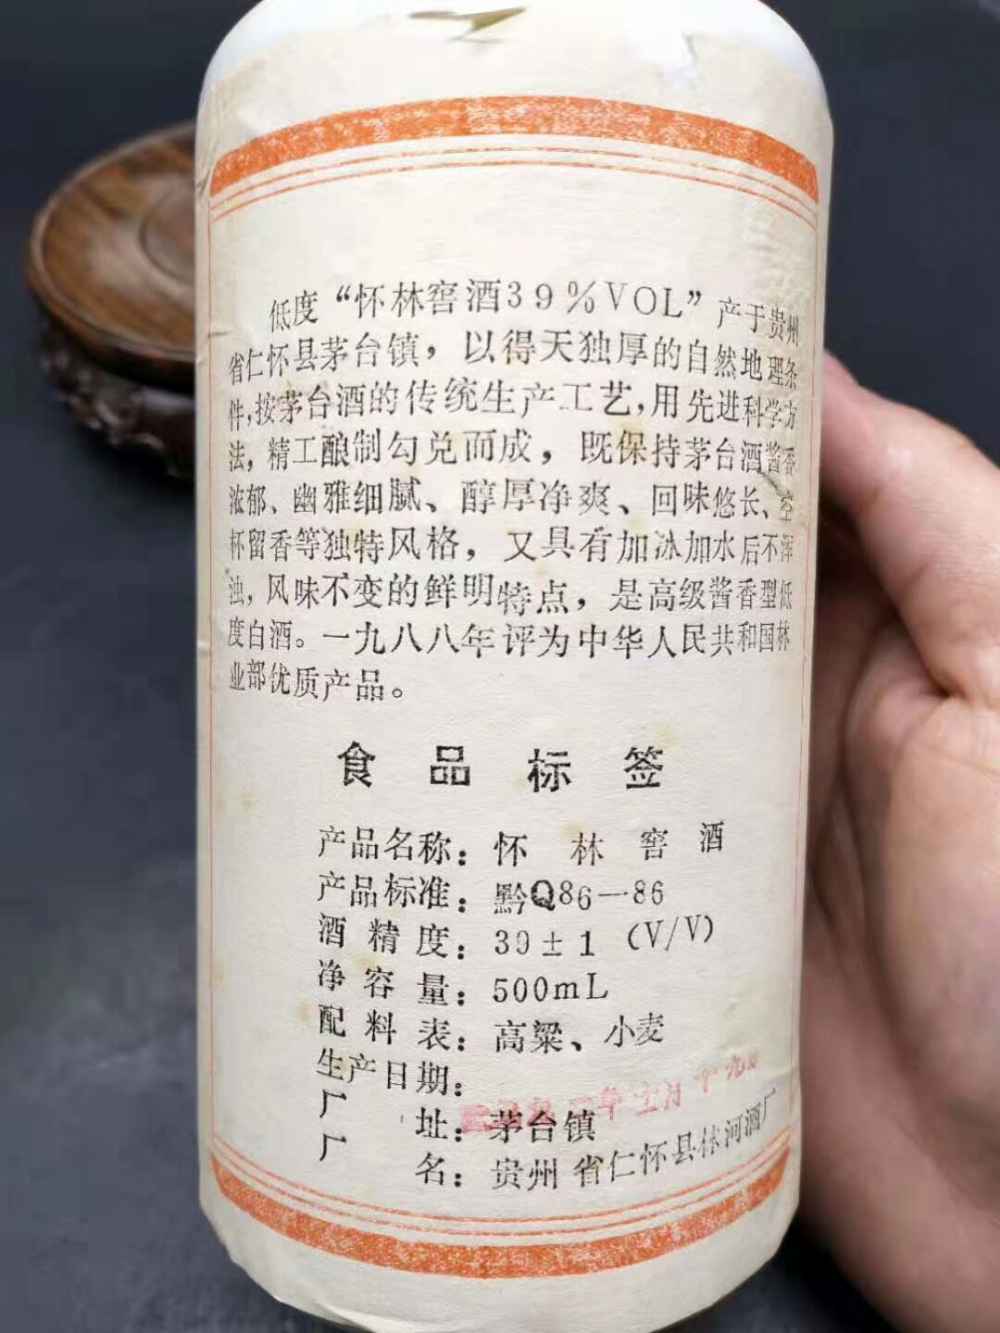 低度“怀林窖酒39%VOL”产于贵州
省仁怀县茅台镇，以得天独厚的自然地理条
件,按茅台酒的传统生产工艺,用先进科学方
法，精工酿制勾兑而成，既保持茅台酒酱香
浓郁、幽雅细腻、醇厚净爽、回味悠长、空
杯留香等独特风格，又具有加冰加水后不浑
浊，风味不变的鲜明特点，是高级酱香型低
度白酒。一九八八年评为中华人民共和国林
业部优质产品。
食品标签
产品名称：怀林窖酒
产品标准：黔Q86—86
酒精度：39±1（V/V）
净容量：500mL
配料表：高粱、小麦
生产日期：
厂址：茅台镇
厂名：贵州省仁怀县林河酒厂